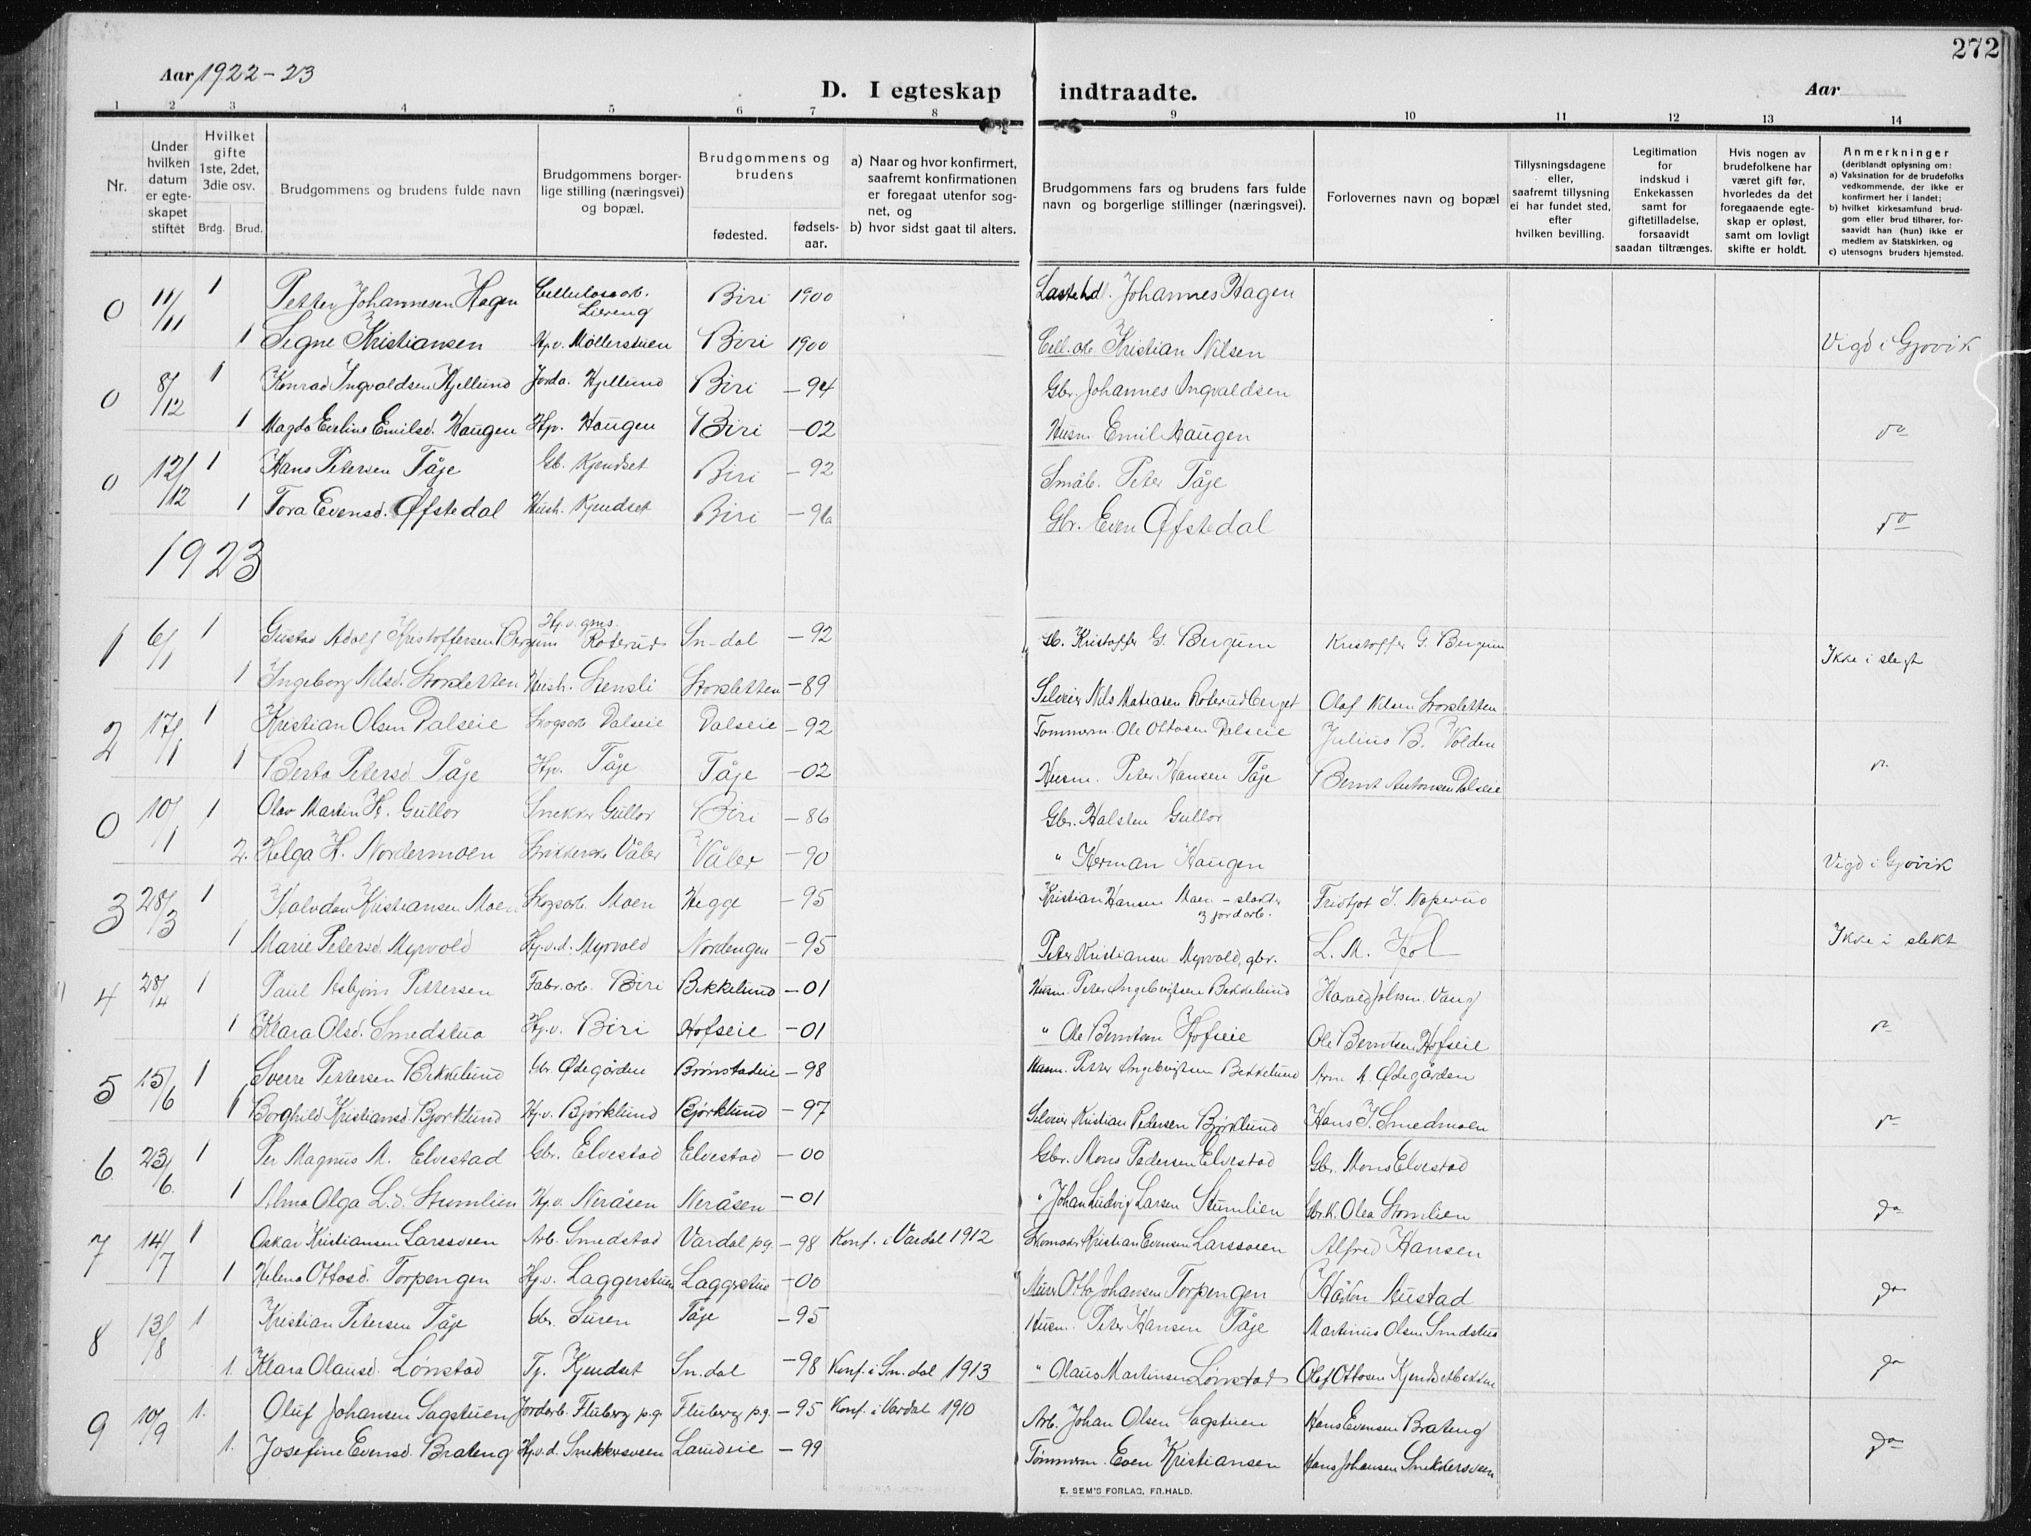 272
Aar 1922-23
D. I egteskap indtraadte.
Aar
1 2 3 4 5 6 7 8 9 10 11 12 13 14
Nr.
Under hvilken datum er egteskapet stiftet
Hvilket gifte 1ste, 2det, 3die osv.
Brdg. Brud.
Brudgommens og brudens fulde navn
Brudgommens borgerlige stilling (næringsvei) og bopæl.
Brudgommens og brudens
fødested.
fødselsaar.
a) Naar og hvor konfirmert, saafremt konfirmationen er foregaat utenfor sognet, og
b) hvor sidst gaat til alters.
Brudgommens fars og brudens fars fulde navn og borgerlige stillinger (næringsvei).
Forlovernes navn og bopæl
Tillysningsdagene eller, saafremt tillysning ei har fundet sted, efter hvilken bevilling.
Legitimation for indskud i Enkekassen samt for giftetilladelse, forsaavidt saadan tiltrænges.
Hvis nogen av brudefolkene har været gift før, hvorledes da det foregaaende egteskap er opløst, samt om lovligt skifte er holdt.
Anmerkninger (deriblandt oplysning om: a) Vaksination for de brudefolks vedkommende, der ikke er konfirmert her i landet; b) hvilket kirkesamfund brudgom eller brud tilhører, forsaavidt han (hun) ikke er medlem av Statskirken, og c) utensogns bruders hjemsted.
0 11/11 1 Petter Johannesen Hagen Cellulosearb. Biri 1900 Johannes Hagen
1 Signe Kristiansen Hp.v. Møllerstuen Biri 1900 Cell.arb. Kristian Nilsen Vigd i Gjøvik
0 8/12 1 Konrad Ingvaldsen Hjellund Jorda. Hjellund Biri -94 Gbr. Johannes Ingvaldsen
1 Magda Eveline Emilsd. Haugen Hp. Haugen Biri -02 Husm Emil Haugen do
0 12/12 1 Hans Petersen Tåje Gb. Kjendset Biri -92 Småb. Peter Tåje
1 Tora Evensd. Øfstedal Hush. Kjendset Biri -96 Gbr. Even Øfstedal do
1923
1 6/1 1 Gustav Adolf Kristoffersen Bergum Hj.v. gms. Roterud Sn-dal -92 Gb. Kristoffer G. Bergum Kristoffer G. Bergum
1 Ingeborg Nilsd. Storsletten Hush. Stensli Storsletten -89 Selveier Nils Matiasen Roterudberget Olaf Nilsen Storsletten Ikke i slegt
2 17/1 1 Kristian Olsen Dalseie Skogsarb Dalseie Dalseie -92 Tømmerm. Ole Ottosen Dalseie Julius B. Volden
1 Berta Petersd. Tåje Hp. Tåje Tåje -02 Husm. Peter Hansen Tåje Bernt Antonsen Dalseie
0 10/1 1 Olav Martin H. Gullor Snekker Gullor Biri -86 Gbr. Halsten Gullor
2. Helga H. Nordermoen Våler Våler -90 " Herman Haugen Vigd i Gjøvik
3 28/3 1 Halvdan Kristiansen Moen Skogsarb. Moen Hegge -95 Kristian Hansen Moen
1 Marie Petersd. Myrvold Hj.v.d. Myrvold Nordengen -95 Peter Kristiansen Myrvold, gbr. L. M. Hol Ikke i slekt
4 28/4 1 Paul Asbjørn Pettersen Fabr.arb. Biri Bekkelund -01 Husm. Peter Ingebrigtsen Bekkelund Harald Johnsen Vang
1 Klara Olsd. Smedstua Hj.v. Biri Hofseie -01 " Ole Berntsen Hofseie Ole Berntsen Hofseie
5 15/6 1 Sverre Pettersen Bekkelund Gbr. Ødegården Brønstadeie -98 Husm. Petter Ingebrigtsen Bekkelund Arne A. Ødegården
1 Borghild Kristiansd. Bjørklund Hj.v. Bjørklund Bjørklund -97 Selveier Kristian Pedersen Bjørklund Hans J. Smedmoen
6 23/6 1 Per Magnus M. Elvestad Gbr. Elvestad Elvestad -00 Gbr. Mons Pedersen Elvestad Gbr. Mons Elvestad
1 Alma Olga L.d. Stumlien Hj.v. Neråsen Neråsen -01 " Johan Ludvig Larsen Stumlien Gbr.k. Olea Stomlien do
7 14/7 1 Oskar Kristiansen Larssveen Arb. Smedstad Vardal pg. -98 Konf. i Vardal 1912 Skomaker Kristian Evensen Larssveen Alfred Hansen
1 Helena Ottosd. Torpengen Hj.v. Laggerstuen Laggrstue -00 Murer Otto Johansen Torpengen Håkon Austad do
8 13/8 1 Kristian Petersen Tåje Gbr. Suren Tåje -95 Husm. Peter Hansen Tåje Martinus Olsen Smdstus
1. Klara Olausd. Lønstad Tj. Kjendset Sn.dal -98 Konf. i Sn.dal 1913 " Olaus Martinsen Lønstad Olaf Ottosen Kjendsetbakken do
9 10/9 1. Oluf Johansen Sagstuen Jordarb. Fluberg p.g. Fluberg p.g. -95 Konf. i Vardal 1910 Arb. Johan Olsen Sagstuen Hans Evensen Brateng
1. Josefine Evensd. Brateng Hj.v.d. Snekkersveen Larudeie -99 Tømmerm. Even Kristiansen Hans Johansen Snekkersveen do
E. SEM'S FORLAG, FR.HALD.